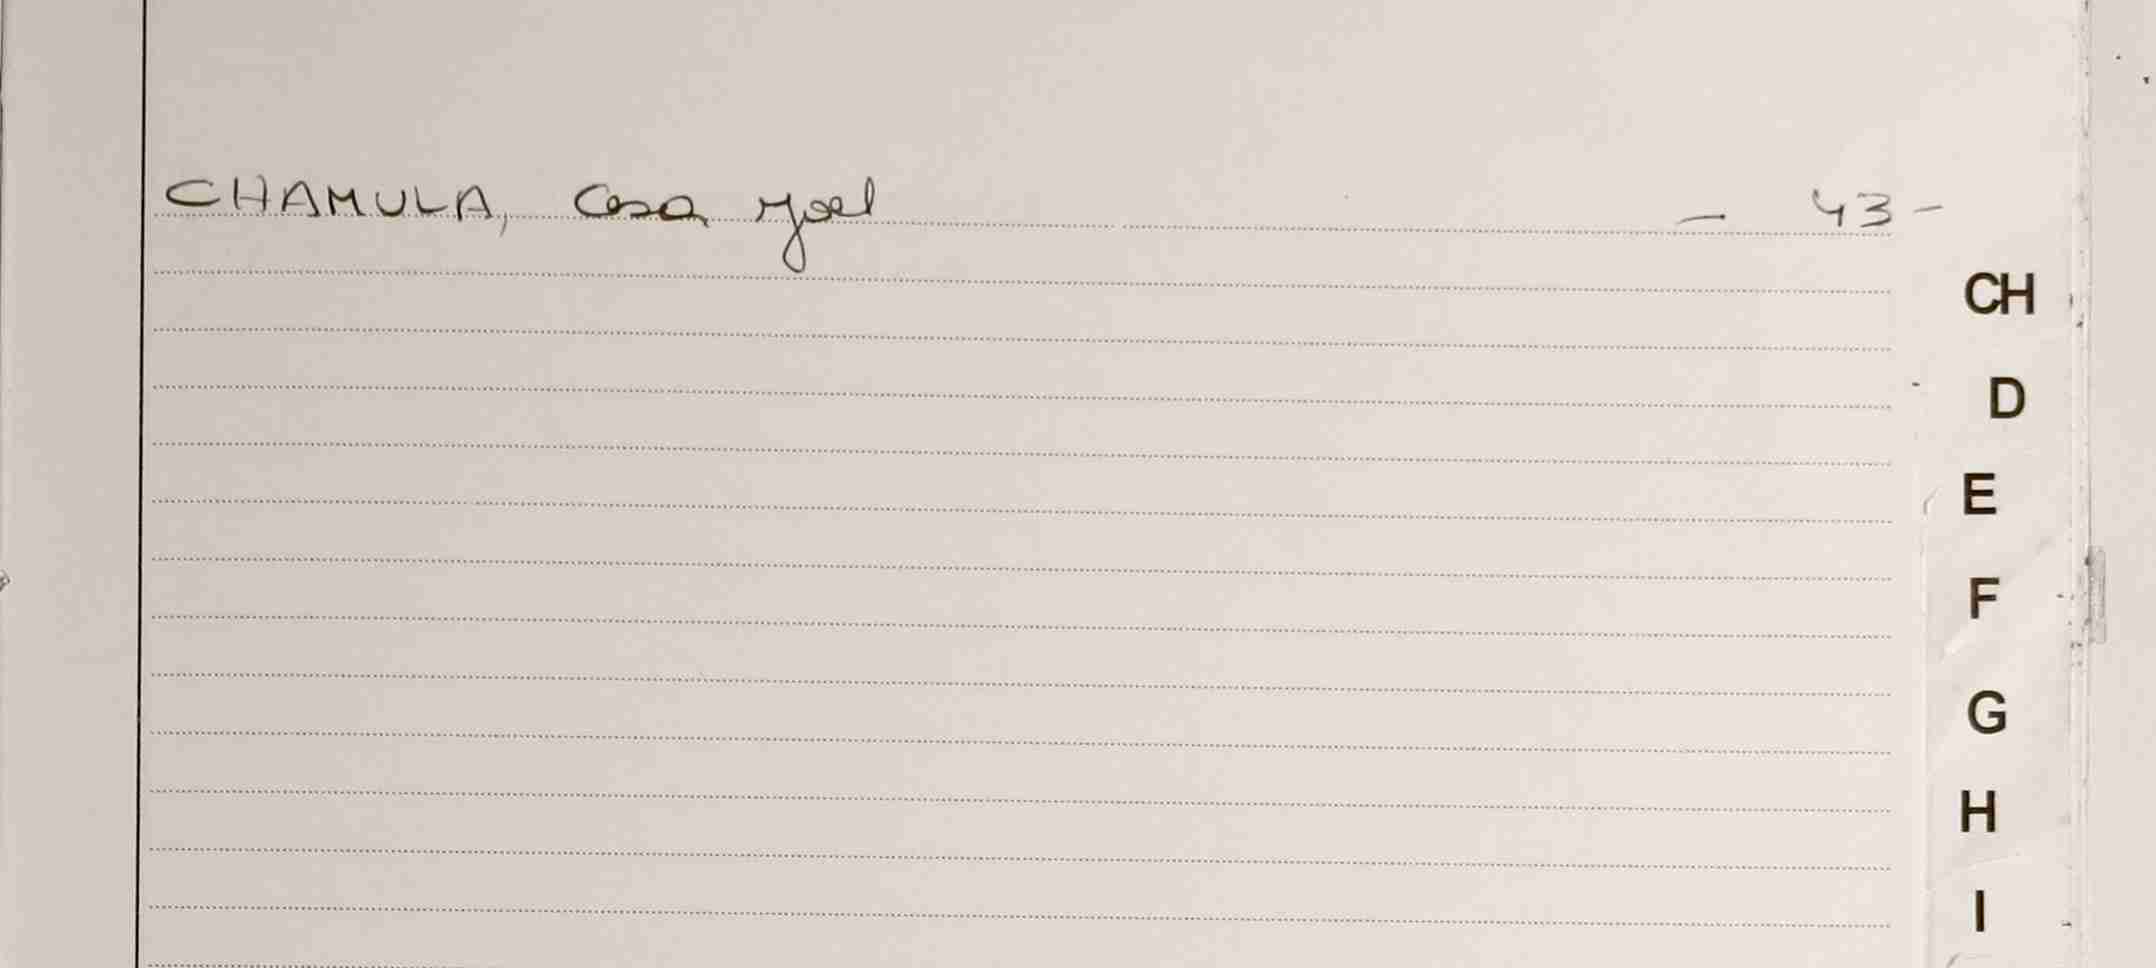 CHAMULA, Casa Yoel — 43 –
CH
D
E
F
G
H
I